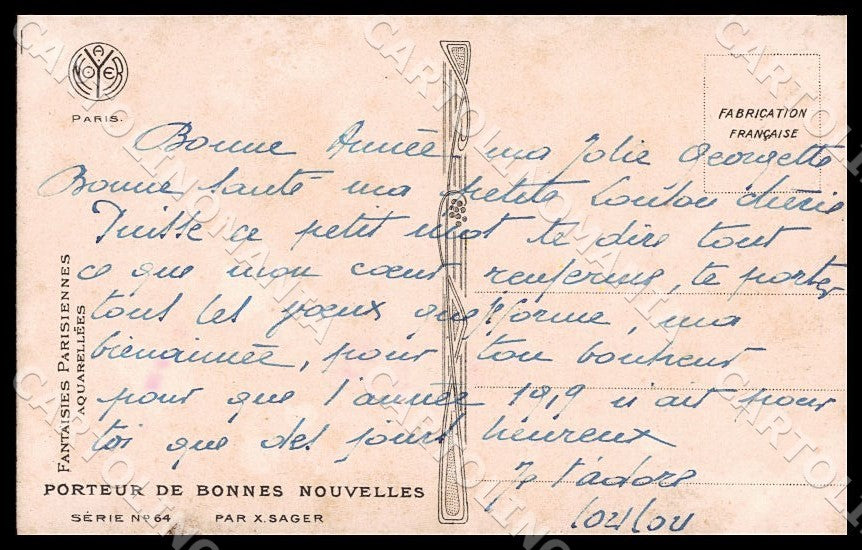 A. NOYER
PARIS.
FABRICATION
FRANÇAISE
Bonne Année ma Jolie Georgette
Bonne Santé ma petite Loulou chérie
Puisse ce petit mot te dire tout
ce que mon cœur renferme, te porter
tous les vœux que forme, ma
bienaimée, pour ton bonheur
pour que l'année 1919 n'ait pour
toi que des jours heureux
Je t'adore
Loulou
FANTAISIES PARISIENNES
AQUARELLÉES
PORTEUR DE BONNES NOUVELLES
SÉRIE No 64 PAR X. SAGER
CARTOLINOMANIA